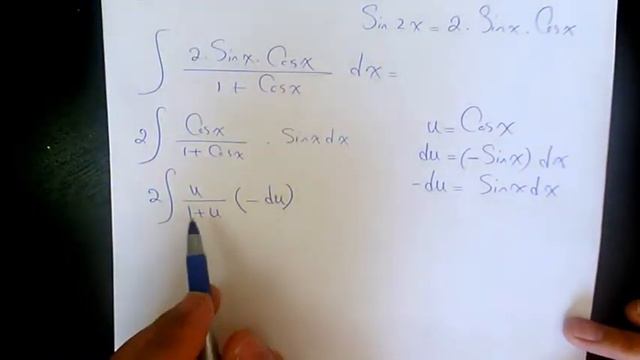 Sin 2x = 2 . Sinx . Cosx
∫ 2. Sinx . Cosx / 1 + Cosx dx =
2 ∫ Cosx / 1 + Cosx . Sinx dx
u = Cosx
du = (-Sinx) dx
-du = Sinx dx
2 ∫ u / 1+u (-du)